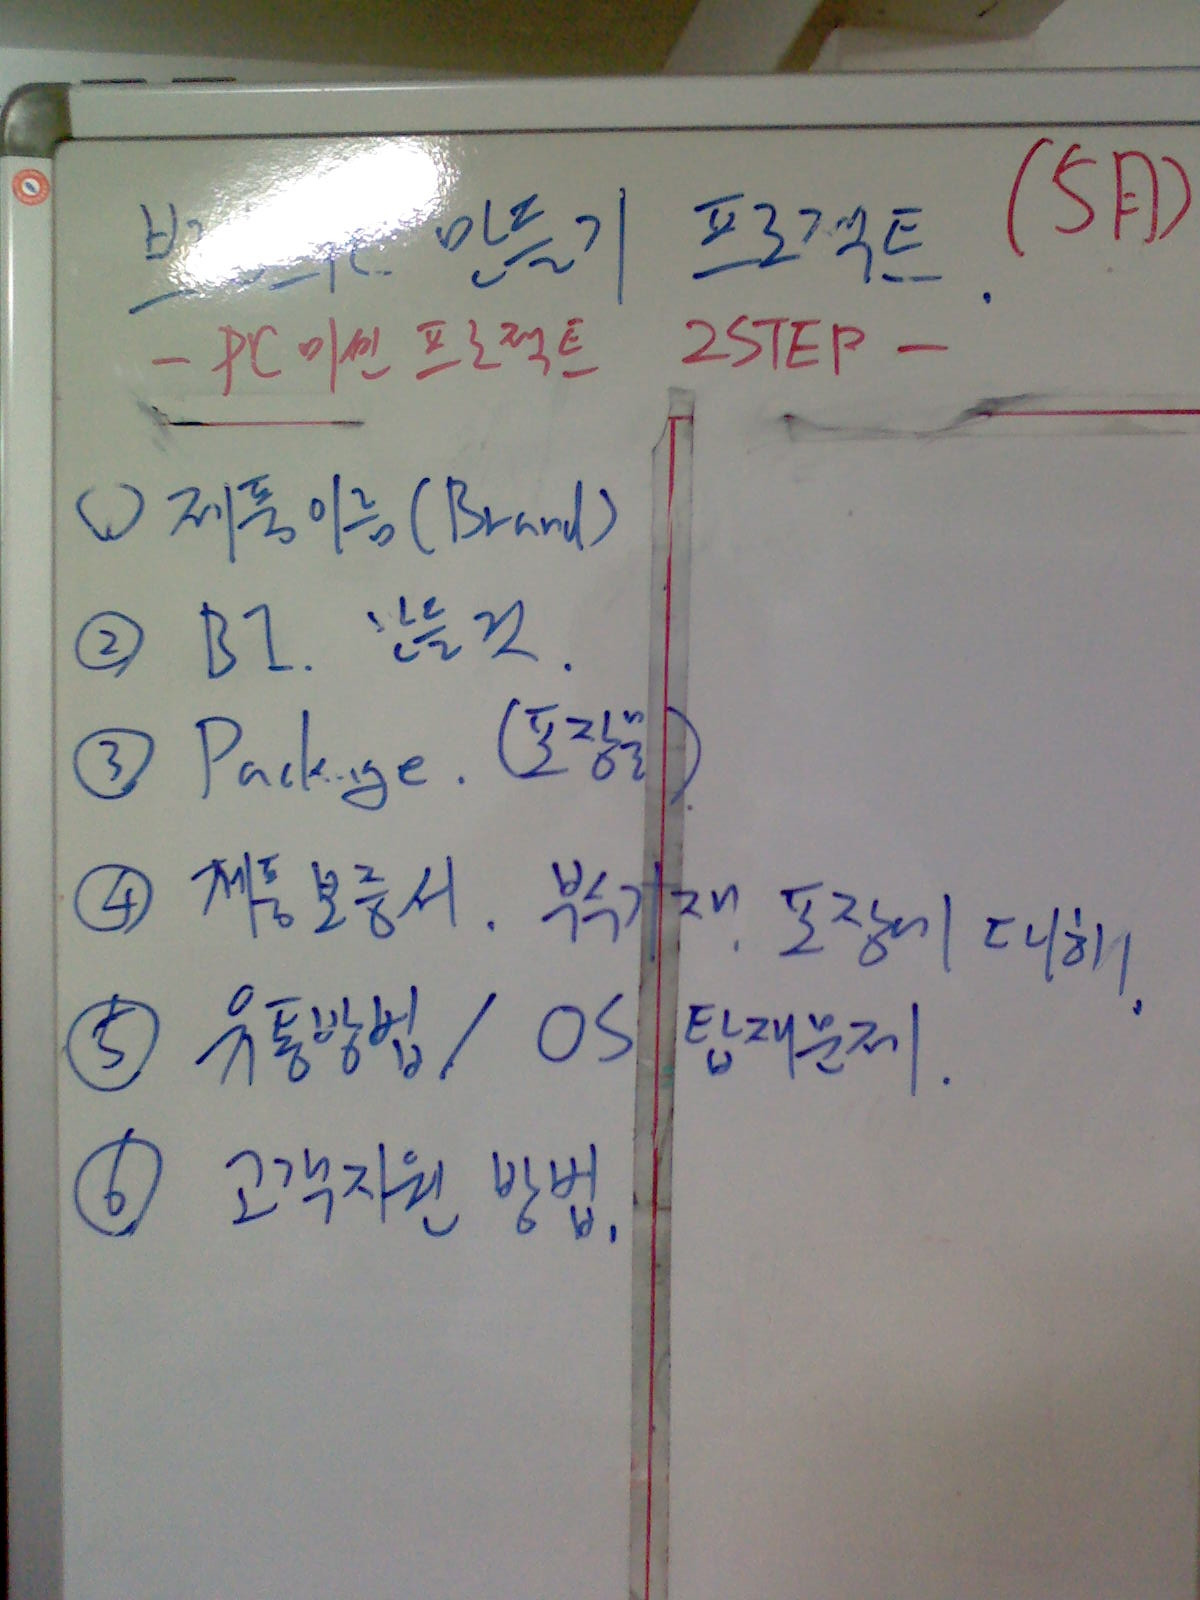 만들기 프로젝트. (5月)
- PC 미씬 프로젝트 2STEP -
① 제품이름 (Brand)
② BI. 만들것.
③ Package. (포장물)
④ 제품보증서. 부속기재. 포장에 대해.
⑤ 유통방법/ OS 탑재문제.
⑥ 고객지원 방법.